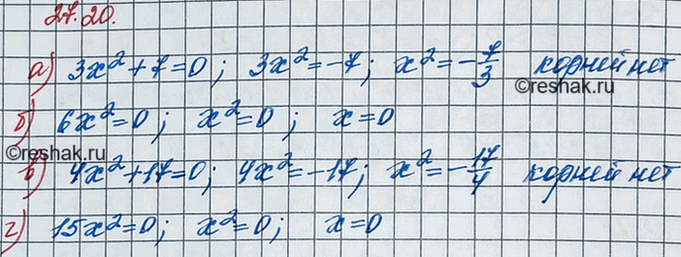 27.20.
а) 3x² + 7 = 0; 3x² = -7; x² = -7/3 корней нет
©reshak.ru
б) 6x² = 0; x² = 0; x = 0
©reshak.ru
в) 4x² + 17 = 0; 4x² = -17; x² = -17/4 корней нет
г) 15x² = 0; x² = 0; x = 0